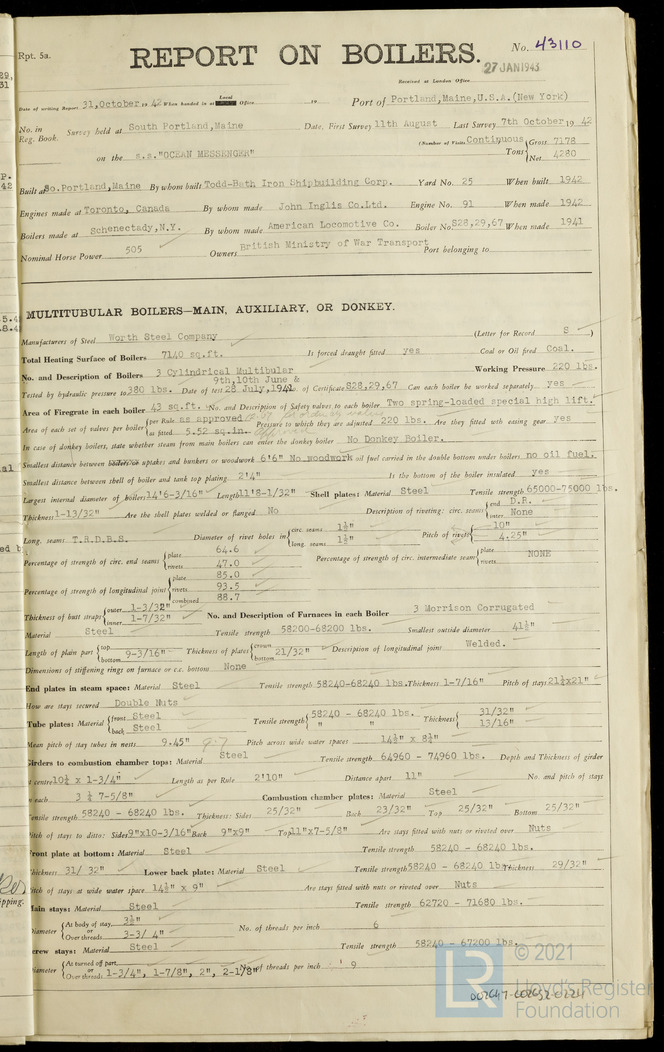 Rpt. 5a.
REPORT ON BOILERS.
No. 43110
27 JAN 1943
Received at London Office
Date of writing Report 31,October 19 42 When handed in at Local Office 19 Port of Portland,Maine,U.S.A.(New York)
No. in Reg. Book. Survey held at South Portland,Maine Date, First Survey 11th August Last Survey 7th October 19 42
(Number of Visits Continuous)
on the s.s."OCEAN MESSENGER" Tons { Gross 7178 Net 4280
Built at So.Portland,Maine By whom built Todd-Bath Iron Shipbuilding Corp. Yard No. 25 When built 1942
Engines made at Toronto, Canada By whom made John Inglis Co.Ltd. Engine No. 91 When made 1942
Boilers made at Schenectady,N.Y. By whom made American Locomotive Co. Boiler No. S28,29,67 When made 1941
Nominal Horse Power 505 Owners British Ministry of War Transport Port belonging to
MULTITUBULAR BOILERS—MAIN, AUXILIARY, OR DONKEY.
Manufacturers of Steel Worth Steel Company (Letter for Record S )
Total Heating Surface of Boilers 7140 sq.ft. Is forced draught fitted yes Coal or Oil fired Coal.
No. and Description of Boilers 3 Cylindrical Multibular Working Pressure 220 lbs.
9th,10th June &
Tested by hydraulic pressure to 380 lbs. Date of test 28 July,1941 No. of Certificate S28,29,67 Can each boiler be worked separately yes
Area of Firegrate in each boiler 43 sq.ft. No. and Description of Safety valves to each boiler Two spring-loaded special high lift.
Area of each set of valves per boiler { per Rule as approved as fitted 5.52 sq.in. Pressure to which they are adjusted 220 lbs. Are they fitted with easing gear yes
In case of donkey boilers, state whether steam from main boilers can enter the donkey boiler No Donkey Boiler.
Smallest distance between boilers or uptakes and bunkers or woodwork 6'6" No woodwork oil fuel carried in the double bottom under boilers no oil fuel.
Smallest distance between shell of boiler and tank top plating 2'4" Is the bottom of the boiler insulated yes
Largest internal diameter of boilers 14'6-3/16" Length 11'8-1/32" Shell plates: Material Steel Tensile strength 65000-75000 lbs.
Thickness 1-13/32" Are the shell plates welded or flanged No Description of riveting: circ. seams { end D.R. inter. None
Long. seams T.R.D.B.S. Diameter of rivet holes in { circ. seams 1½" long. seams 1½" Pitch of rivets { 10" 4.25"
Percentage of strength of circ. end seams { plate 64.6 rivets 47.0 Percentage of strength of circ. intermediate seam { plate rivets NONE
Percentage of strength of longitudinal joint { plate 85.0 rivets 93.5 combined 88.7
Thickness of butt straps { outer 1-3/32" inner 1-7/32" No. and Description of Furnaces in each Boiler 3 Morrison Corrugated
Material Steel Tensile strength 58200-68200 lbs. Smallest outside diameter 41½"
Length of plain part { top bottom 9-3/16" Thickness of plates { crown bottom 21/32" Description of longitudinal joint Welded.
Dimensions of stiffening rings on furnace or c.c. bottom None
End plates in steam space: Material Steel Tensile strength 58240-68240 lbs. Thickness 1-7/16" Pitch of stays 21½x21"
How are stays secured Double Nuts
Tube plates: Material { front Steel back Steel Tensile strength { 58240 - 68240 lbs. " " " Thickness { 31/32" 13/16"
Mean pitch of stay tubes in nests 9.45" Pitch across wide water spaces 14½" x 8½"
Girders to combustion chamber tops: Material Steel Tensile strength 64960 - 74960 lbs. Depth and Thickness of girder
at centre 10½ x 1-3/4" Length as per Rule 2'10" Distance apart 11" No. and pitch of stays
in each 3 @ 7-5/8" Combustion chamber plates: Material Steel
Tensile strength 58240 - 68240 lbs. Thickness: Sides 25/32" Back 23/32" Top 25/32" Bottom 25/32"
Pitch of stays to ditto: Sides 9"x10-3/16" Back 9"x9" Top 11"x7-5/8" Are stays fitted with nuts or riveted over Nuts
Front plate at bottom: Material Steel Tensile strength 58240 - 68240 lbs.
Thickness 31/ 32" Lower back plate: Material Steel Tensile strength 58240 - 68240 lbs. Thickness 29/32"
Pitch of stays at wide water space 14½" x 9" Are stays fitted with nuts or riveted over Nuts
Main stays: Material Steel Tensile strength 62720 - 71680 lbs.
Diameter { At body of stay, or Over threads 3½" 3-3/ 4" No. of threads per inch 6
Screw stays: Material Steel Tensile strength 58240 - 67200 lbs.
Diameter { At turned off part, or Over threads 1-3/4", 1-7/8", 2", 2-1/8" No. of threads per inch 9
© 2021
Lloyd's Register
Foundation
LR
002647-002652-0221